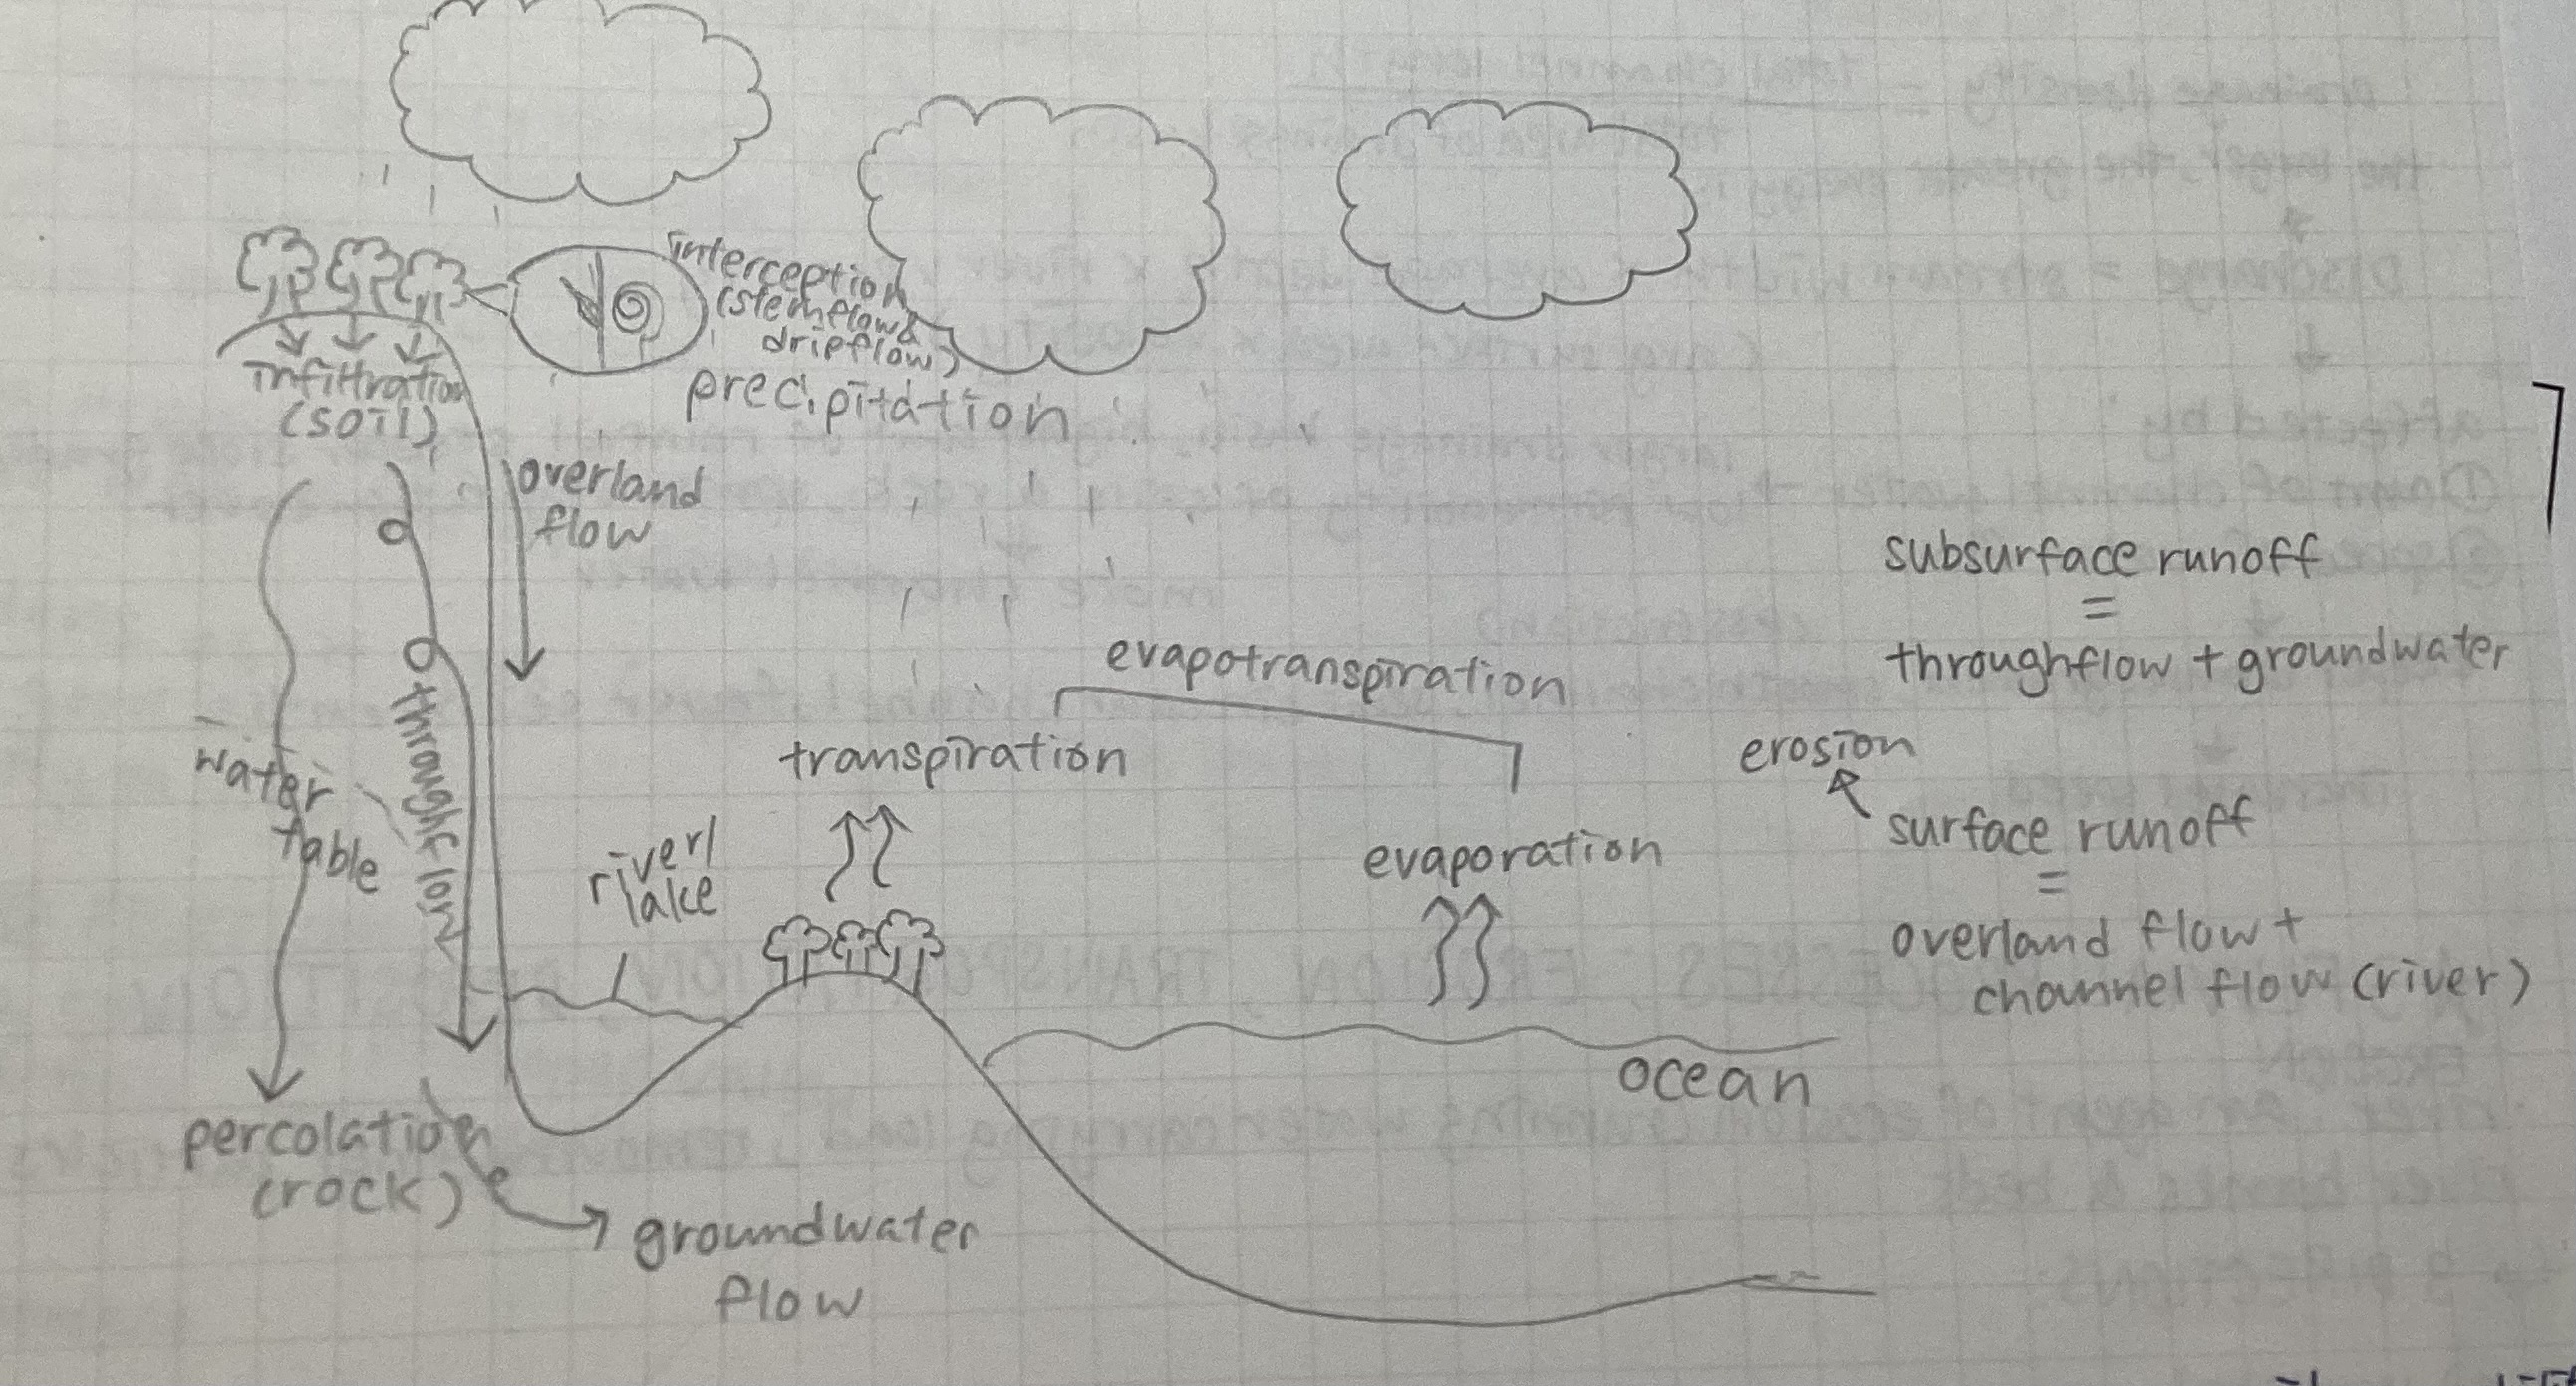 interception
(stemflow &
dripflow)
precipitation
infiltration
(soil)
overland
flow
water
table
throughflow
percolation
(rock)
groundwater
flow
river/
lake
transpiration
evapotranspiration
evaporation
ocean
subsurface runoff
=
throughflow + groundwater
erosion
surface runoff
=
overland flow +
channel flow (river)